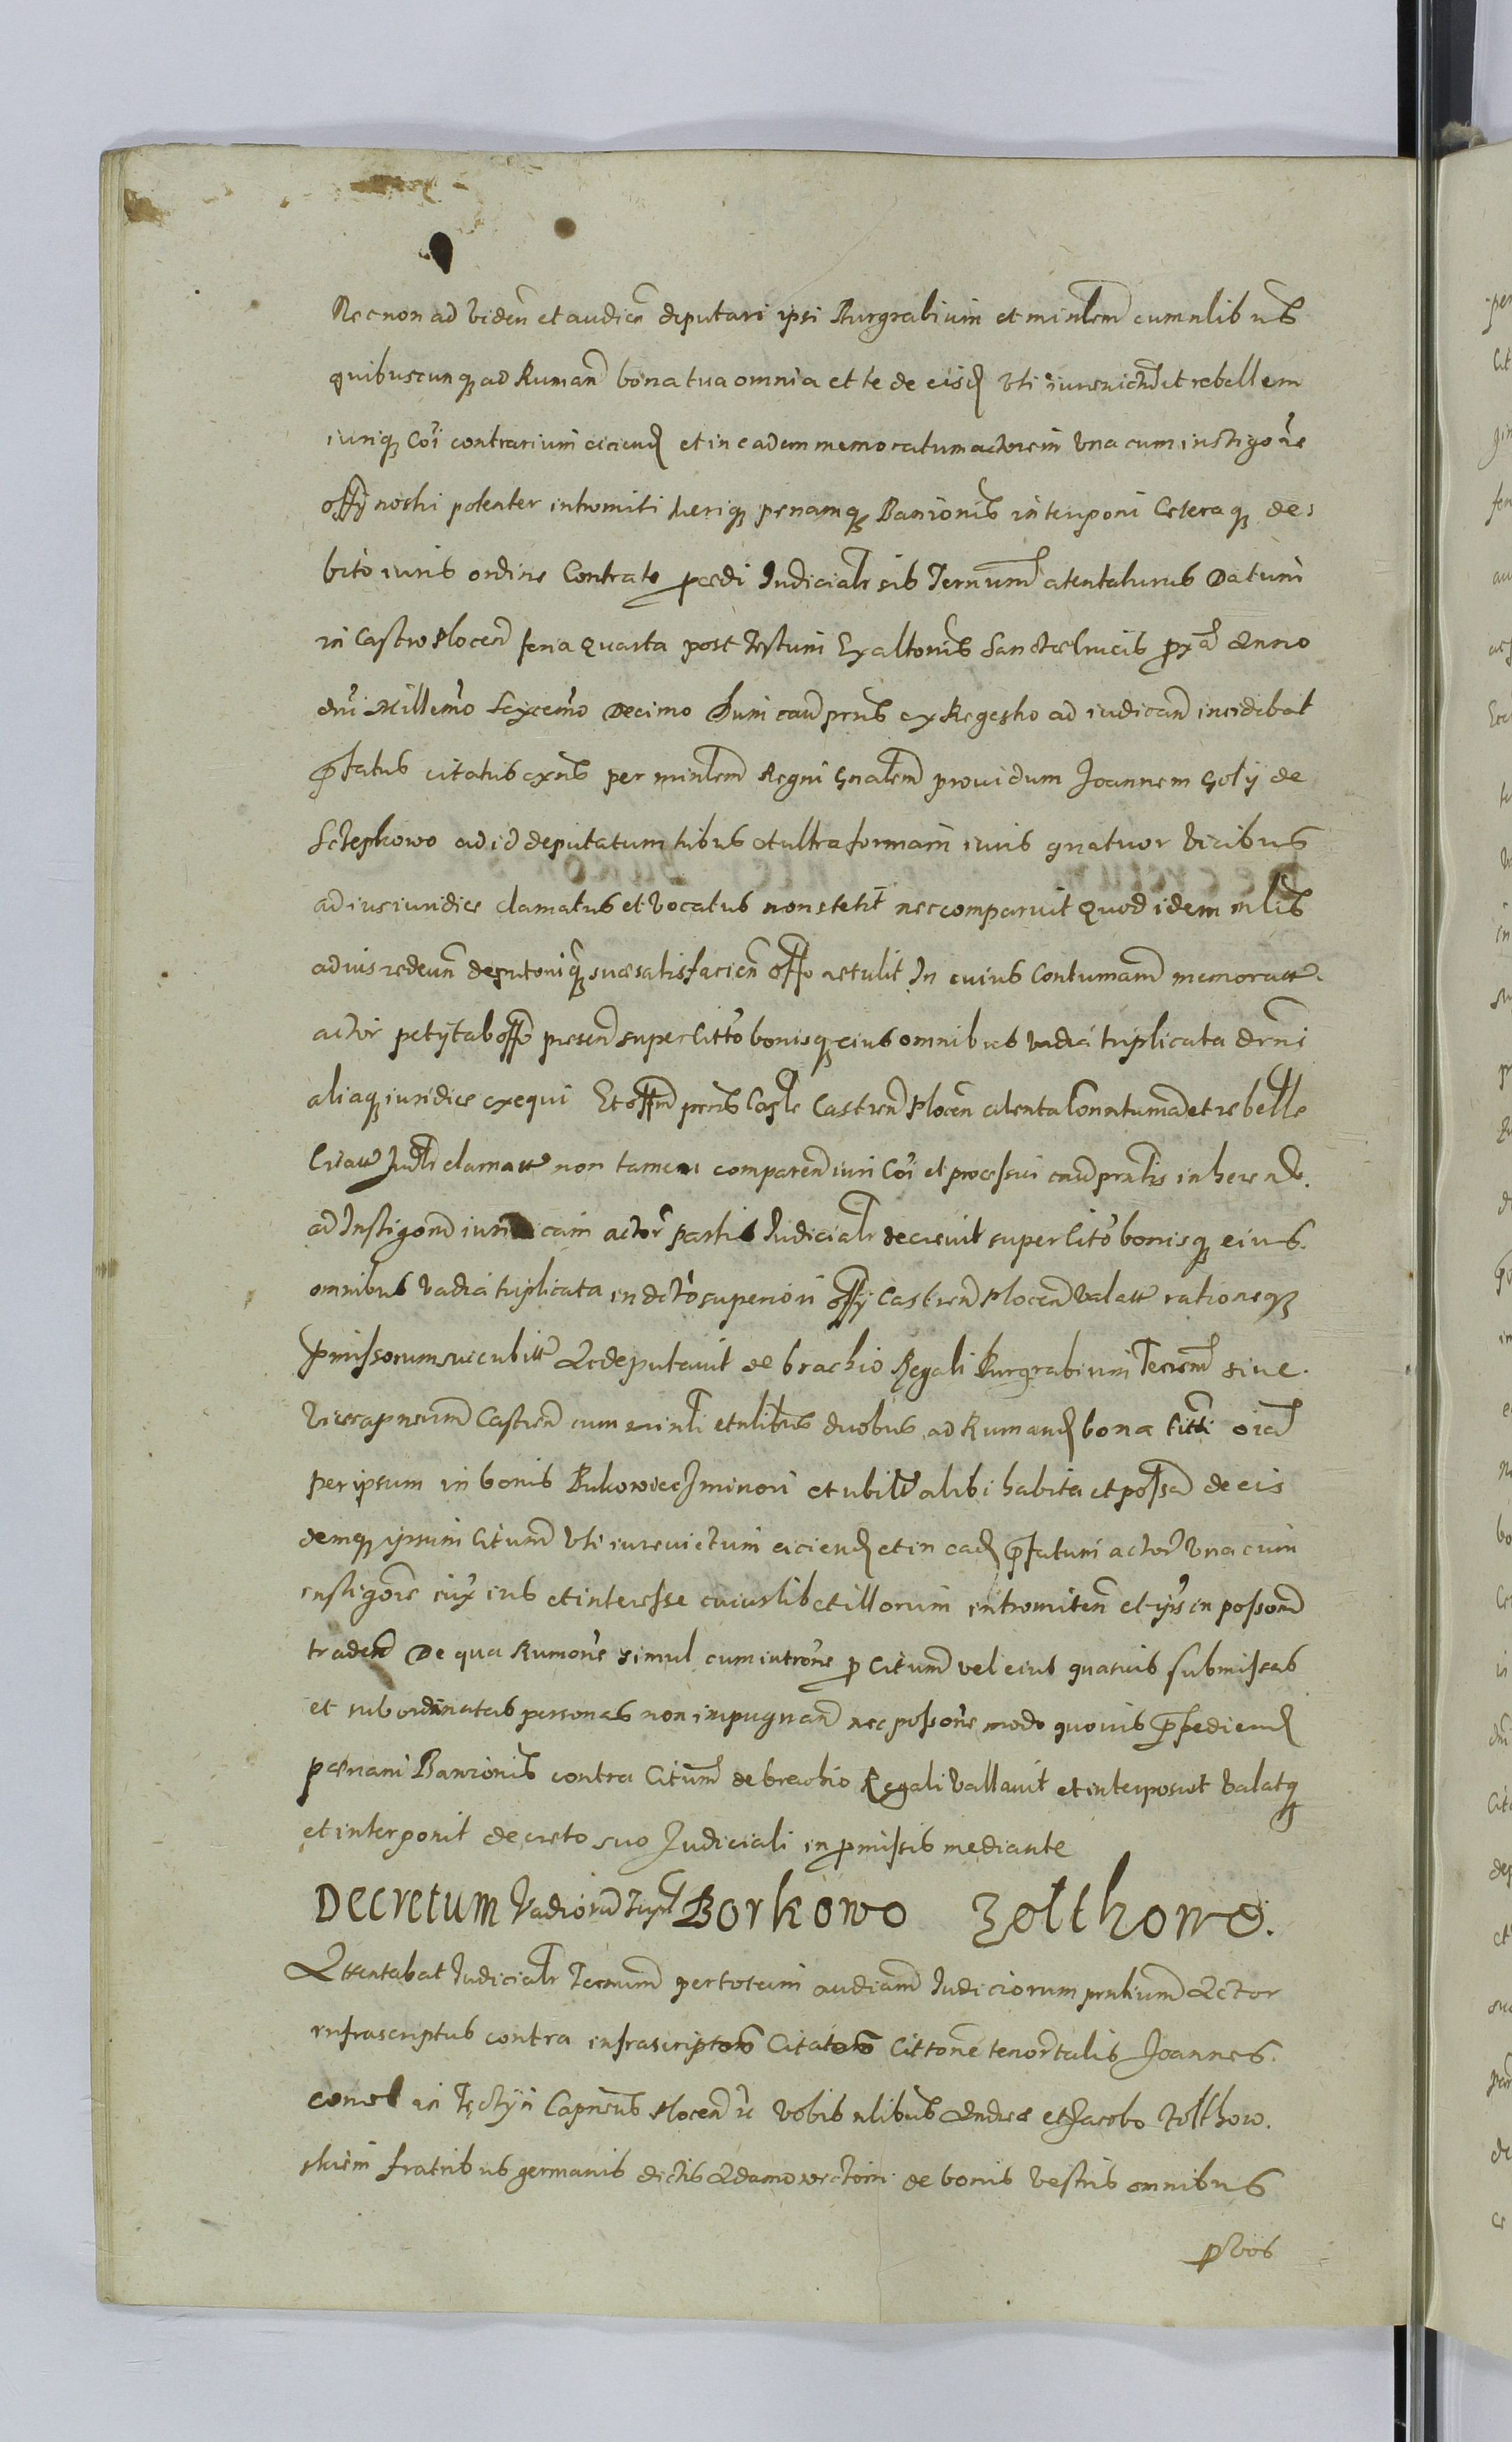 Necnon ad viden et audien deputari ipsi Burgrabium et minlem cum nlibus
quibuscunq ad Rumand bona tua omnia et te de eisd vti iurevictum et rebellem
iuriq Coi contrarium eiciend et in eadem memoratum actorem vna cum instigore
offy nostri potenter intromitti penamq Banionis interponi Ceteraq de
bito iuris ordine Contra te procedi Judicialr sis Terminum atentaturus Datum
in Castro Plocen feria Quarta post Festum Exaltonis Sanctae Crucis pxa Anno
dni Millemo Sexcemo Decimo Dum cau prns ex Regestro ad iudicand incidebat
pfatus citatus exns per minlem Regni gnalem prouidum Joannem Goly de
ad id deputatum tribus et ultra formam iuris quatuor vicibus
ad ius iuridice clamatus et vocatus non stetit nec comparuit Quod idem mlis
ad ius redeun deputoniq suae satisfacien offo retulit In cuius Contumam memoratt
actor petyt ab offo presen super citto bonisq eius omnibus vadia triplicata drni
aliaq iuridice exequi Et offm prns Caple Castren Plocen atenta Contumada et rebelle
Citatt Judlr clamatt non tamen comparen iuri Coi et processui cau prntis inherendo
ad Instigond iuridicam actor partis Judicialr decrevit super Cito bonisq eius
omnibus vadia triplicata in dcto superiori offy Castren Plocen valatt rationeq
pmissorum succubitt Ac deputavit de brachio Regali Burgrabium Terrem sive
Vicecapneum Castren cum minli et nlibus duobus ad Rumand bona Citti oia
per ipsum in bonis Bukowiecz minori et ubilt alibi habita et possa de eis
demq ipsum Citum vti iurevictum eiciend et in ead pfatum actor vna cum
instigore iux ius et interesse cuiuslibet illorum intromiten et ijs in posson
traden De qua Rumone simul cum introne p Citum vel eius quasvis submissas
et subordinatas personas non impugnand nec possone modo quovis pfediend
paenam Banionis contra Citum de brachio Regali vallavit et interposuit valatq
et interponit decreto suo Judiciali in pmissis mediante
Decretum Vadioru Tripl Borkowo Zolthowo.
Attentabat Judicialr Terminum per totam audiam Judiciorum prntium Actor
infrascriptus contra infrascriptoro Citatoro Cittone tenor talis Joannes
comes in Tęctyn Capneus Plocen ic vobis nlibus Andreae et Jacobo Zolthow
skiem fratribus germanis dictis de bonis vestris omnibus
p vos